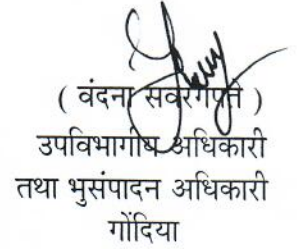 ( वंदना सवरंगपते )
उपविभागीय अधिकारी
तथा भुसंपादन अधिकारी
गोंदिया